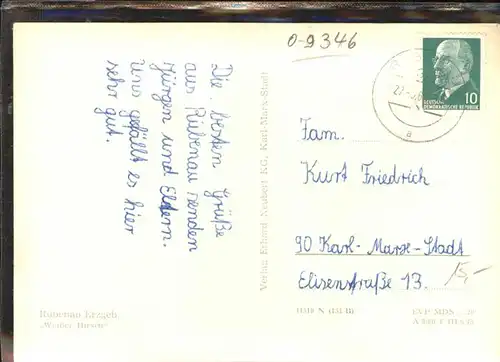 0-9346
Die besten Grüße
aus Rübenau senden
Jürgen und Eltern.
Uns gefällt es hier
sehr gut.
Fam.
Kurt Friedrich
90 Karl-Marx-Stadt
Elisenstraße 13.
15,-
10
DEUTSCHE
DEMOKRATISCHE REPUBLIK
Verlag Erhard Neubert KG, Karl-Marx-Stadt
Rübenau Erzgeb.
„Weißer Hirsch"